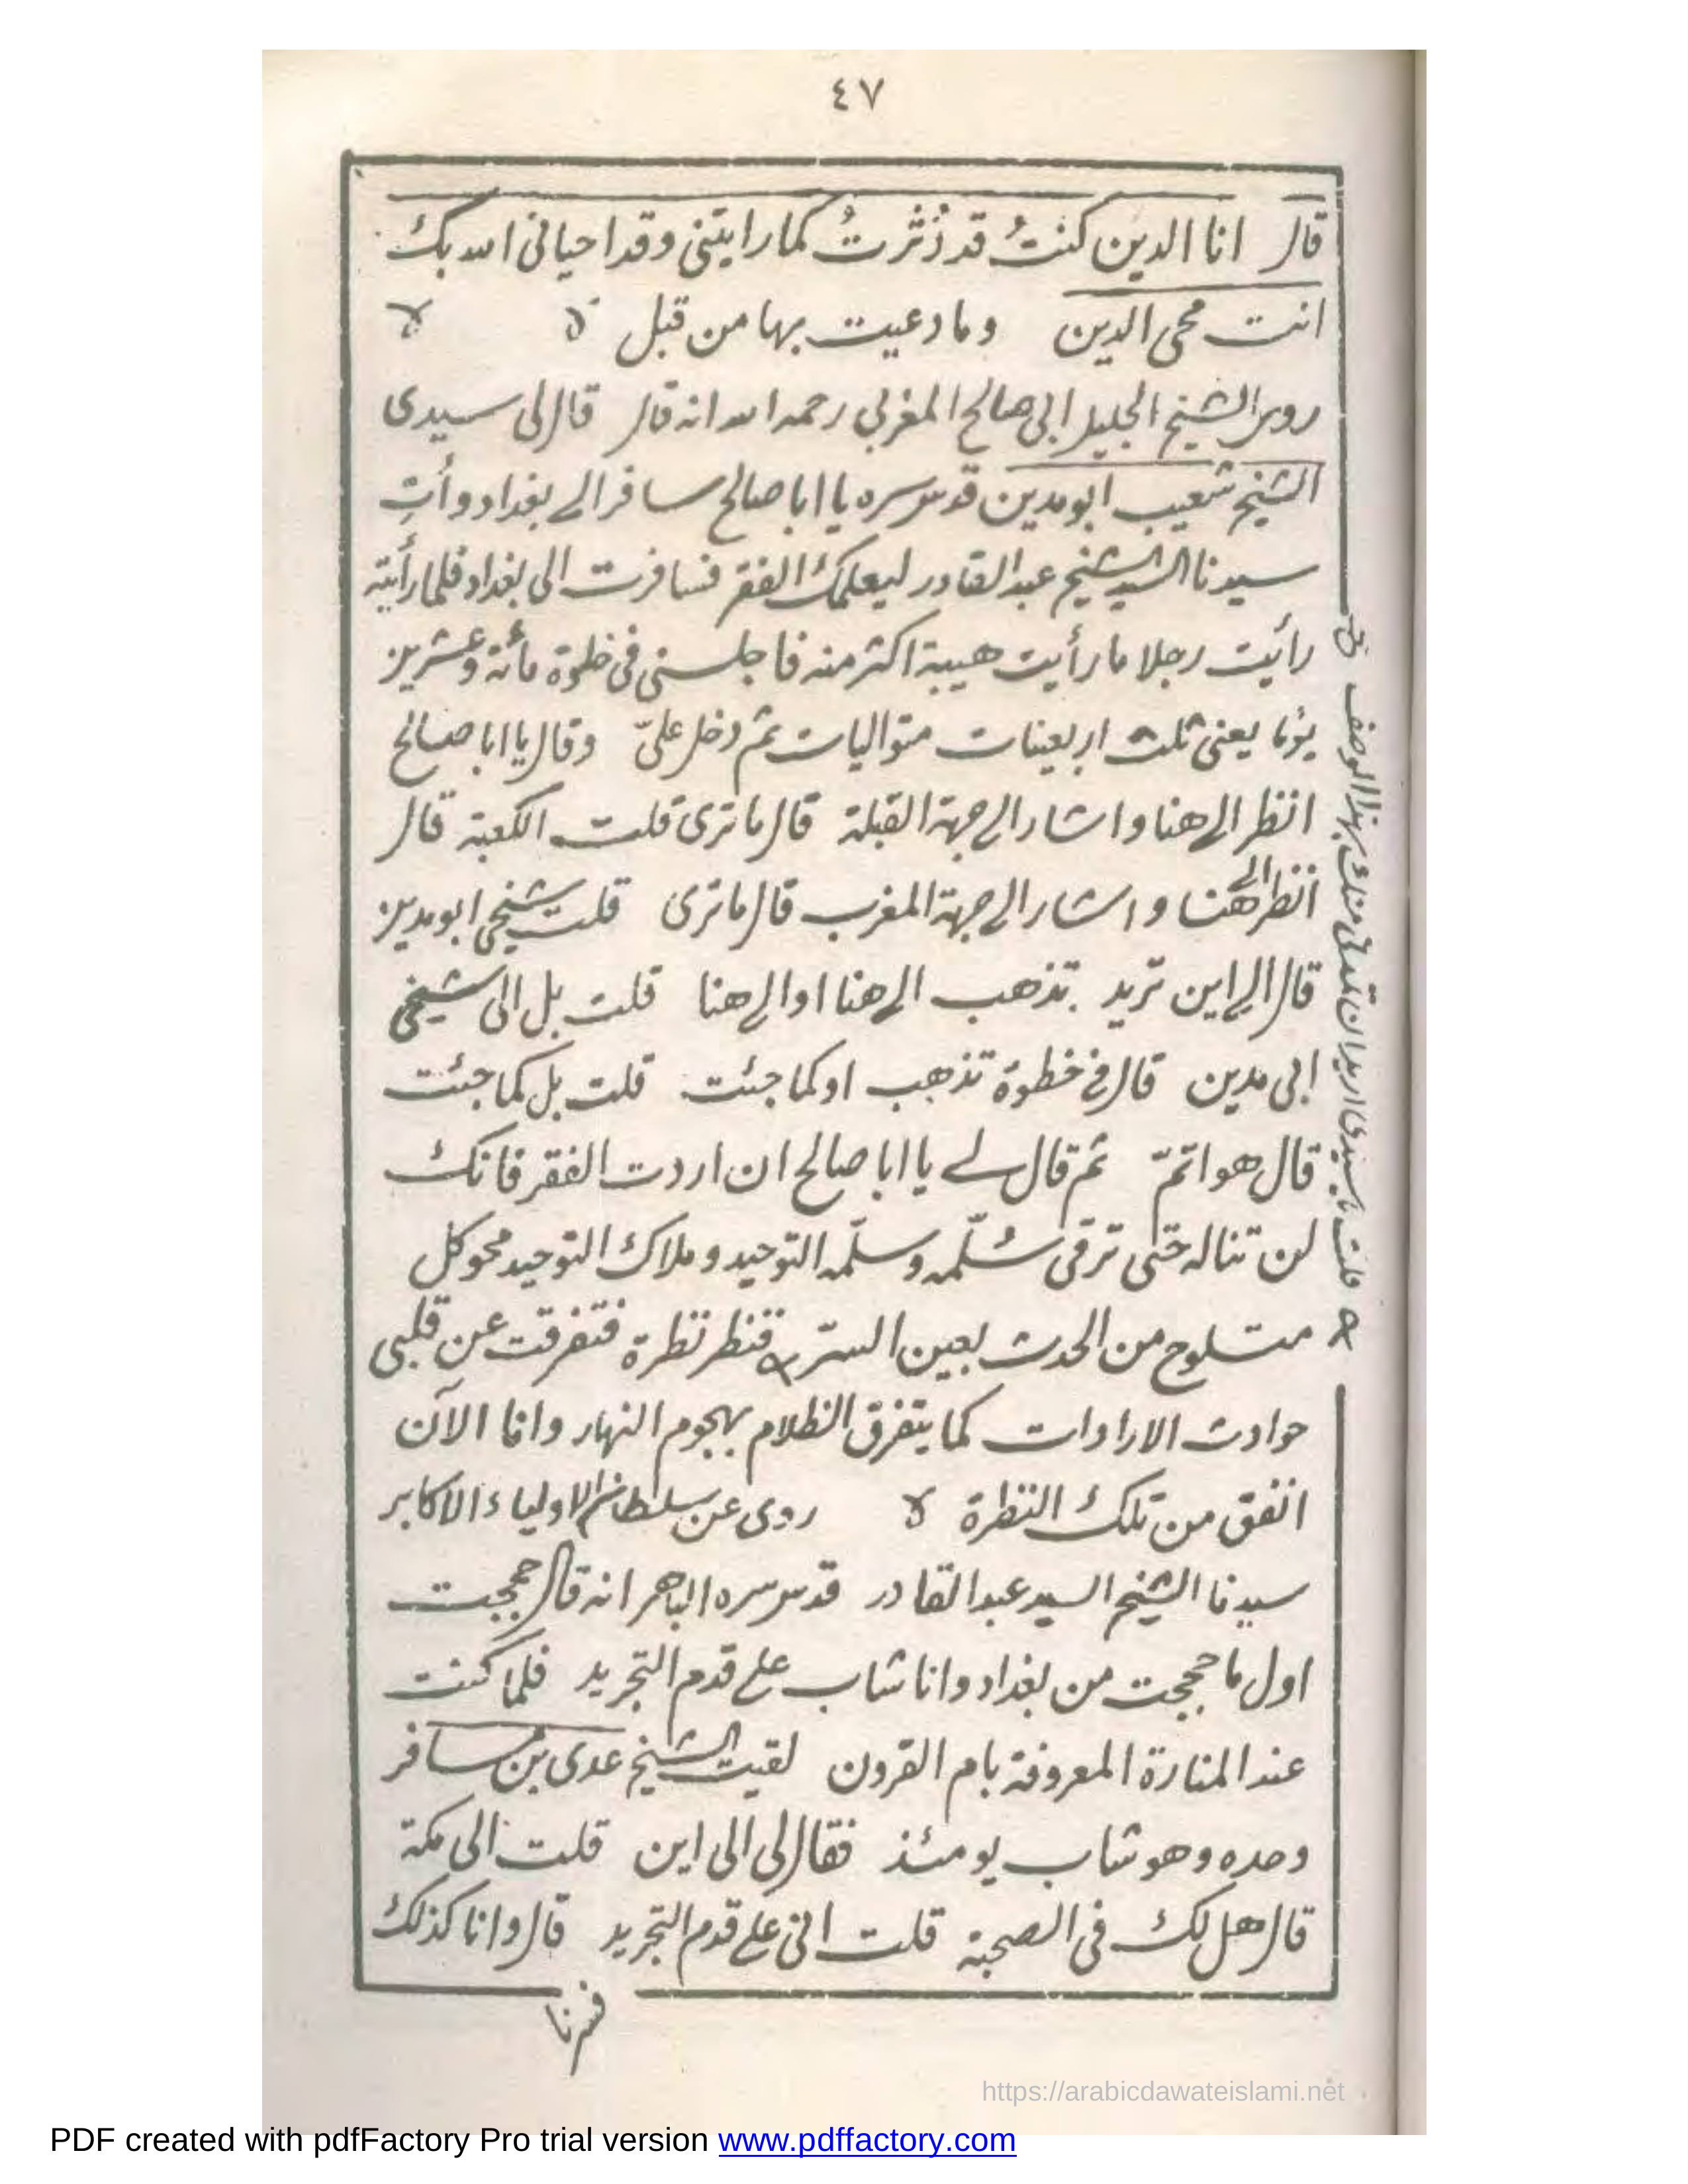 ٤٧
قال انا الدين كنتُ قد دُثرتُ كما رايتنى وقد احيانى الله بك
انت محى الدين وما دعيت بها من قبل
روى الشيخ الجليل ابى صالح المغربى رحمه الله انه قال قال لى سيدى
الشيخ شعيب ابو مدين قدس سره يا ابا صالح سافر الى بغداد وأتِ
سيدنا السيد الشيخ عبد القادر ليعلمك الفقر فسافرت الى بغداد فلما رأيته
رأيت رجلا ما رأيت هيبة اكثر منه فاجلسنى فى خلوة مأئة وعشرين
يومًا يعنى ثلث اربعينات متواليات ثم دخل علىّ وقال يا ابا صالح
انظر الى هنا واشار الى جهة القبلة قال ما ترى قلت الكعبة قال
انظر الى هنا واشار الى جهة المغرب قال ما ترى قلت شيخى ابو مدين
قال الى اين تريد تذهب الى هنا او الى هنا قلت بل الى شيخى
ابى مدين قال فى خطوة تذهب او كما جئت قلت بل كما جئت
قال هو اتمّ ثم قال لى يا ابا صالح ان اردت الفقر فانك
لن تناله حتى ترقى سُلّمه وسلّمه التوحيد وملاك التوحيد محو كل
متلوح من الحدث بعين السرّ فنظر نظرة فتفرقت عن قلبى
حوادث الارادات كما يتفرق الظلام بهجوم النهار وانا الآن
انفق من تلك النظرة روى عن سلطان الاولياء الاكابر
سيدنا الشيخ السيد عبد القادر قدس سره الباهر انه قال حججت
اول ما حججت من بغداد وانا شاب على قدم التجريد فلما كنت
عند المنارة المعروفة بام القرون لقيت الشيخ عدى بن مسافر
وحده وهو شاب يومئذ فقال لى الى اين قلت الى مكة
قال هل لك فى الصحبة قلت انى على قدم التجريد قال وانا كذلك
فسرنا
قلت يا سيدى اريد ان تمدنى منك بهذا الوصف
https://arabicdawateislami.net
PDF created with pdfFactory Pro trial version www.pdffactory.com